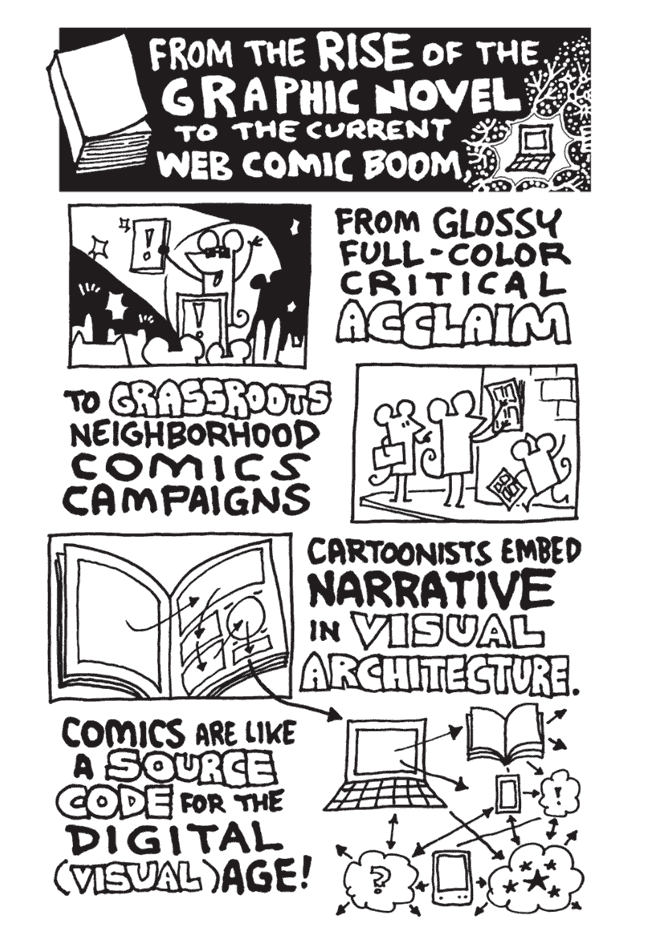 FROM THE RISE OF THE
GRAPHIC NOVEL
TO THE CURRENT
WEB COMIC BOOM,
!
!
FROM GLOSSY
FULL-COLOR
CRITICAL
ACCLAIM
TO GRASSROOTS
NEIGHBORHOOD
COMICS
CAMPAIGNS
CARTOONISTS EMBED
NARRATIVE
IN VISUAL
ARCHITECTURE.
COMICS ARE LIKE
A SOURCE
CODE FOR THE
DIGITAL
(VISUAL) AGE!
!
?